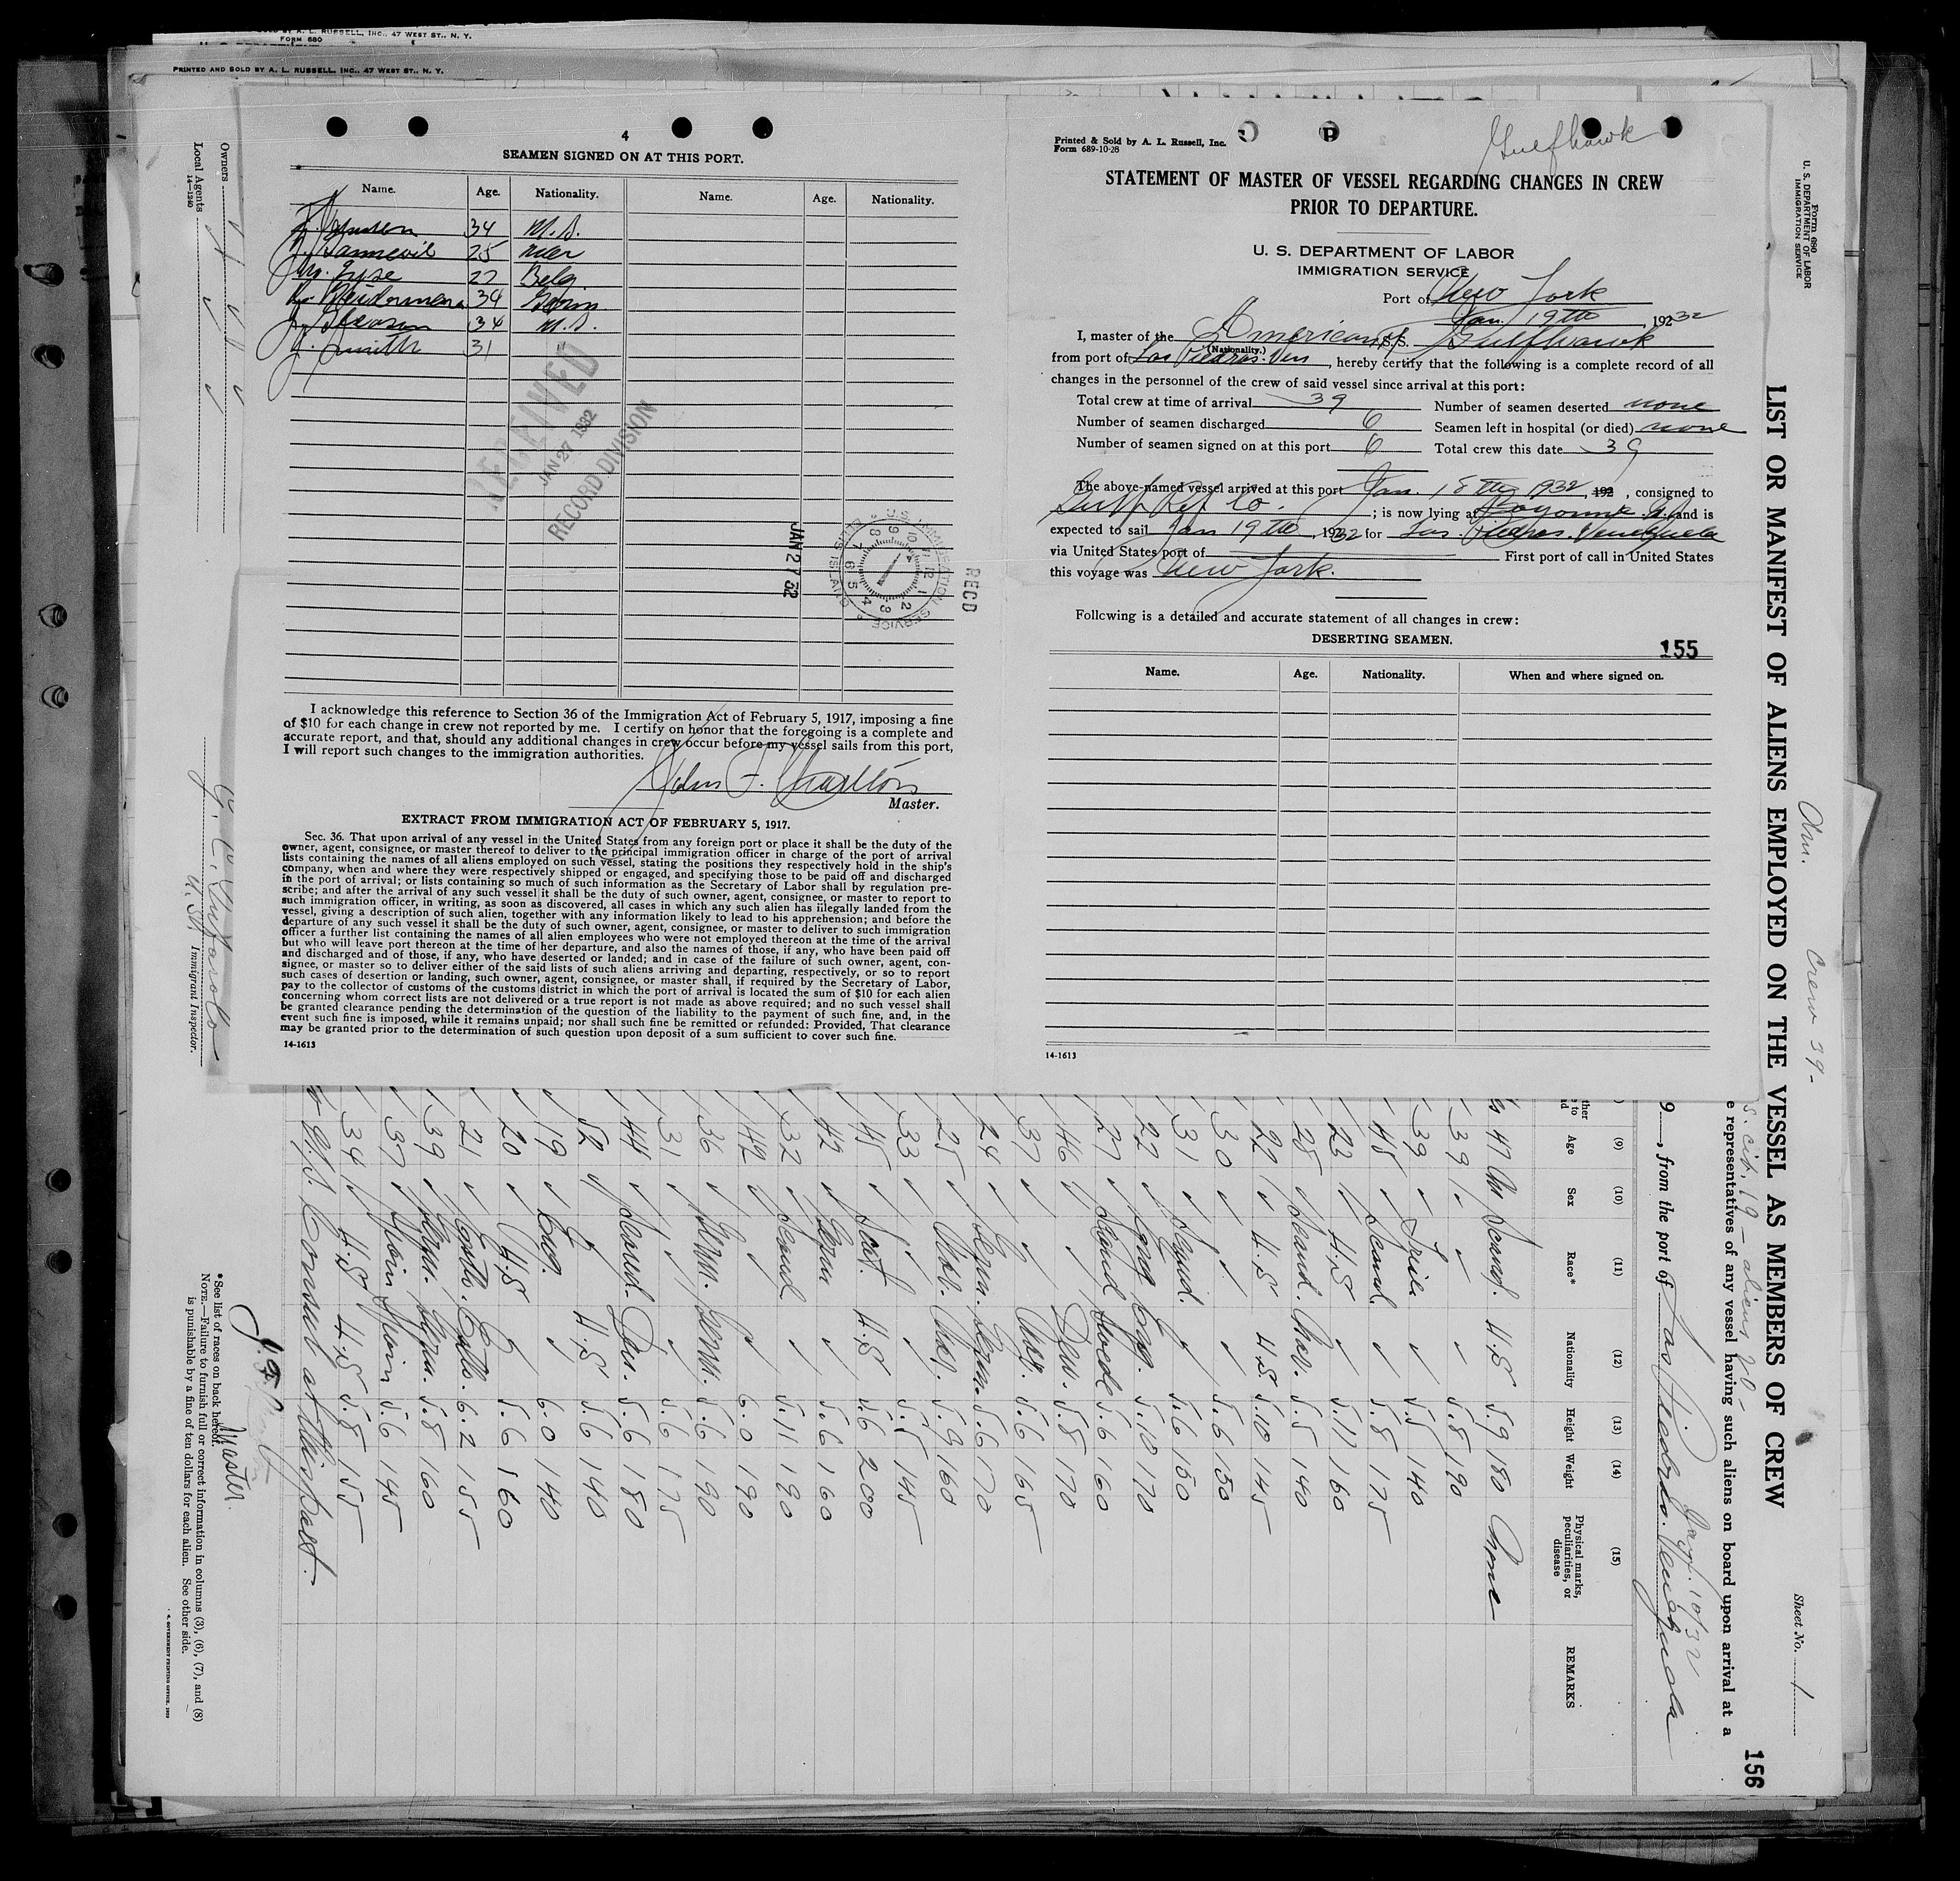 PRINTED AND SOLD BY A. L. RUSSELL, INC., 47 WEST ST., N. Y.
FORM 680
PRINTED AND SOLD BY A. L. RUSSELL, INC., 47 WEST ST., N. Y.
4
SEAMEN SIGNED ON AT THIS PORT.
Name. Age. Nationality. Name. Age. Nationality.
34 U.S.
25
27 Belg
34 Germ
34 U.S.
J. Smith 31 "
RECEIVED
JAN 27 1932
RECORD DIVISION
JAN 27 32
U.S. IMMIGRATION SERVICE
ELLIS ISLAND
RECD
I acknowledge this reference to Section 36 of the Immigration Act of February 5, 1917, imposing a fine
of $10 for each change in crew not reported by me. I certify on honor that the foregoing is a complete and
accurate report, and that, should any additional changes in crew occur before my vessel sails from this port,
I will report such changes to the immigration authorities.
John F. Charlton
Master.
EXTRACT FROM IMMIGRATION ACT OF FEBRUARY 5, 1917.
Sec. 36. That upon arrival of any vessel in the United States from any foreign port or place it shall be the duty of the
owner, agent, consignee, or master thereof to deliver to the principal immigration officer in charge of the port of arrival
lists containing the names of all aliens employed on such vessel, stating the positions they respectively hold in the ship's
company, when and where they were respectively shipped or engaged, and specifying those to be paid off and discharged
in the port of arrival; or lists containing so much of such information as the Secretary of Labor shall by regulation pre-
scribe; and after the arrival of any such vessel it shall be the duty of such owner, agent, consignee, or master to report to
such immigration officer, in writing, as soon as discovered, all cases in which any such alien has illegally landed from the
vessel, giving a description of such alien, together with any information likely to lead to his apprehension; and before the
departure of any such vessel it shall be the duty of such owner, agent, consignee, or master to deliver to such immigration
officer a further list containing the names of all alien employees who were not employed thereon at the time of the arrival
but who will leave port thereon at the time of her departure, and also the names of those, if any, who have been paid off
and discharged and of those, if any, who have deserted or landed; and in case of the failure of such owner, agent, con-
signee, or master so to deliver either of the said lists of such aliens arriving and departing, respectively, or so to report
such cases of desertion or landing, such owner, agent, consignee, or master shall, if required by the Secretary of Labor,
pay to the collector of customs of the customs district in which the port of arrival is located the sum of $10 for each alien
concerning whom correct lists are not delivered or a true report is not made as above required; and no such vessel shall
be granted clearance pending the determination of the question of the liability to the payment of such fine, and, in the
event such fine is imposed, while it remains unpaid; nor shall such fine be remitted or refunded: Provided, That clearance
may be granted prior to the determination of such question upon deposit of a sum sufficient to cover such fine.
14-1613
Gulfhawk
Printed & Sold by A. L. Russell, Inc.
Form 689-10-28
STATEMENT OF MASTER OF VESSEL REGARDING CHANGES IN CREW
PRIOR TO DEPARTURE.
U. S. DEPARTMENT OF LABOR
IMMIGRATION SERVICE
Port of New York
Jan. 19th, 19232
I, master of the American S.S. Gulfhawk
(Nationality.)
from port of Las Piedras. Ven, hereby certify that the following is a complete record of all
changes in the personnel of the crew of said vessel since arrival at this port:
Total crew at time of arrival 39 Number of seamen deserted none
Number of seamen discharged 6 Seamen left in hospital (or died) none
Number of seamen signed on at this port 6 Total crew this date 39
The above-named vessel arrived at this port Jan. 18th 1932, 192 , consigned to
Gulf Ref Co. ; is now lying at Bayonne N.J. and is
expected to sail Jan 19th, 1932 for Las Piedras. Venezuela
via United States port of First port of call in United States
this voyage was New York.
Following is a detailed and accurate statement of all changes in crew:
DESERTING SEAMEN.
155
Name. Age. Nationality. When and where signed on.
14-1613
Form 680
U. S. DEPARTMENT OF LABOR
IMMIGRATION SERVICE
LIST OR MANIFEST OF ALIENS EMPLOYED ON THE VESSEL AS MEMBERS OF CREW
Am. Crew 39-
Sheet No. 1
156
s. cit. 19 - aliens 20-
e representatives of any vessel having such aliens on board upon arrival at a
9 , from the port of Las Piedras. Venezuela
Jany. 10/32
(9) (10) (11) (12) (13) (14) (15)
Age Sex Race* Nationality Height Weight Physical marks, peculiarities, or disease REMARKS
47 Scand. U.S 5.9 180 None
39 5.8 190
39 Irie 5.5 140
45 Scand. 5.8 175
23 U.S 5.11 160
28 Scand. Nor. 5.5 140
22 U.S U.S 5.10 145
30 5.6 150
31 Scand. 5.6 150
22 5.10 170
27 Scand Swede 5.6 160
46 Den. 5.8 170
37 5.6 165
24 Germ. Germ. 5.6 170
25 5.9 160
33 5.5 145
45 Scot. U.S 5.6 200
42 Germ 5.6 160
32 Scand 5.11 190
42 6.0 190
36 Germ. Germ. 5.6 190
31 5.6 175
44 Scand. Den. 5.6 180
52 U.S 5.6 140
19 Eng. 6.0 140
20 U.S 5.6 160
21 Esth. Esth. 6.2 155
39 Germ. Germ. 5.8 160
37 Spain Spain 5.6 145
34 U.S U.S 5.8 155
Consul at this Port.
Master.
*See list of races on back hereof.
NOTE.—Failure to furnish full or correct information in columns (3), (6), (7), and (8)
is punishable by a fine of ten dollars for each alien. See other side.
Owners
Local Agents
14-1240
Immigrant Inspector.